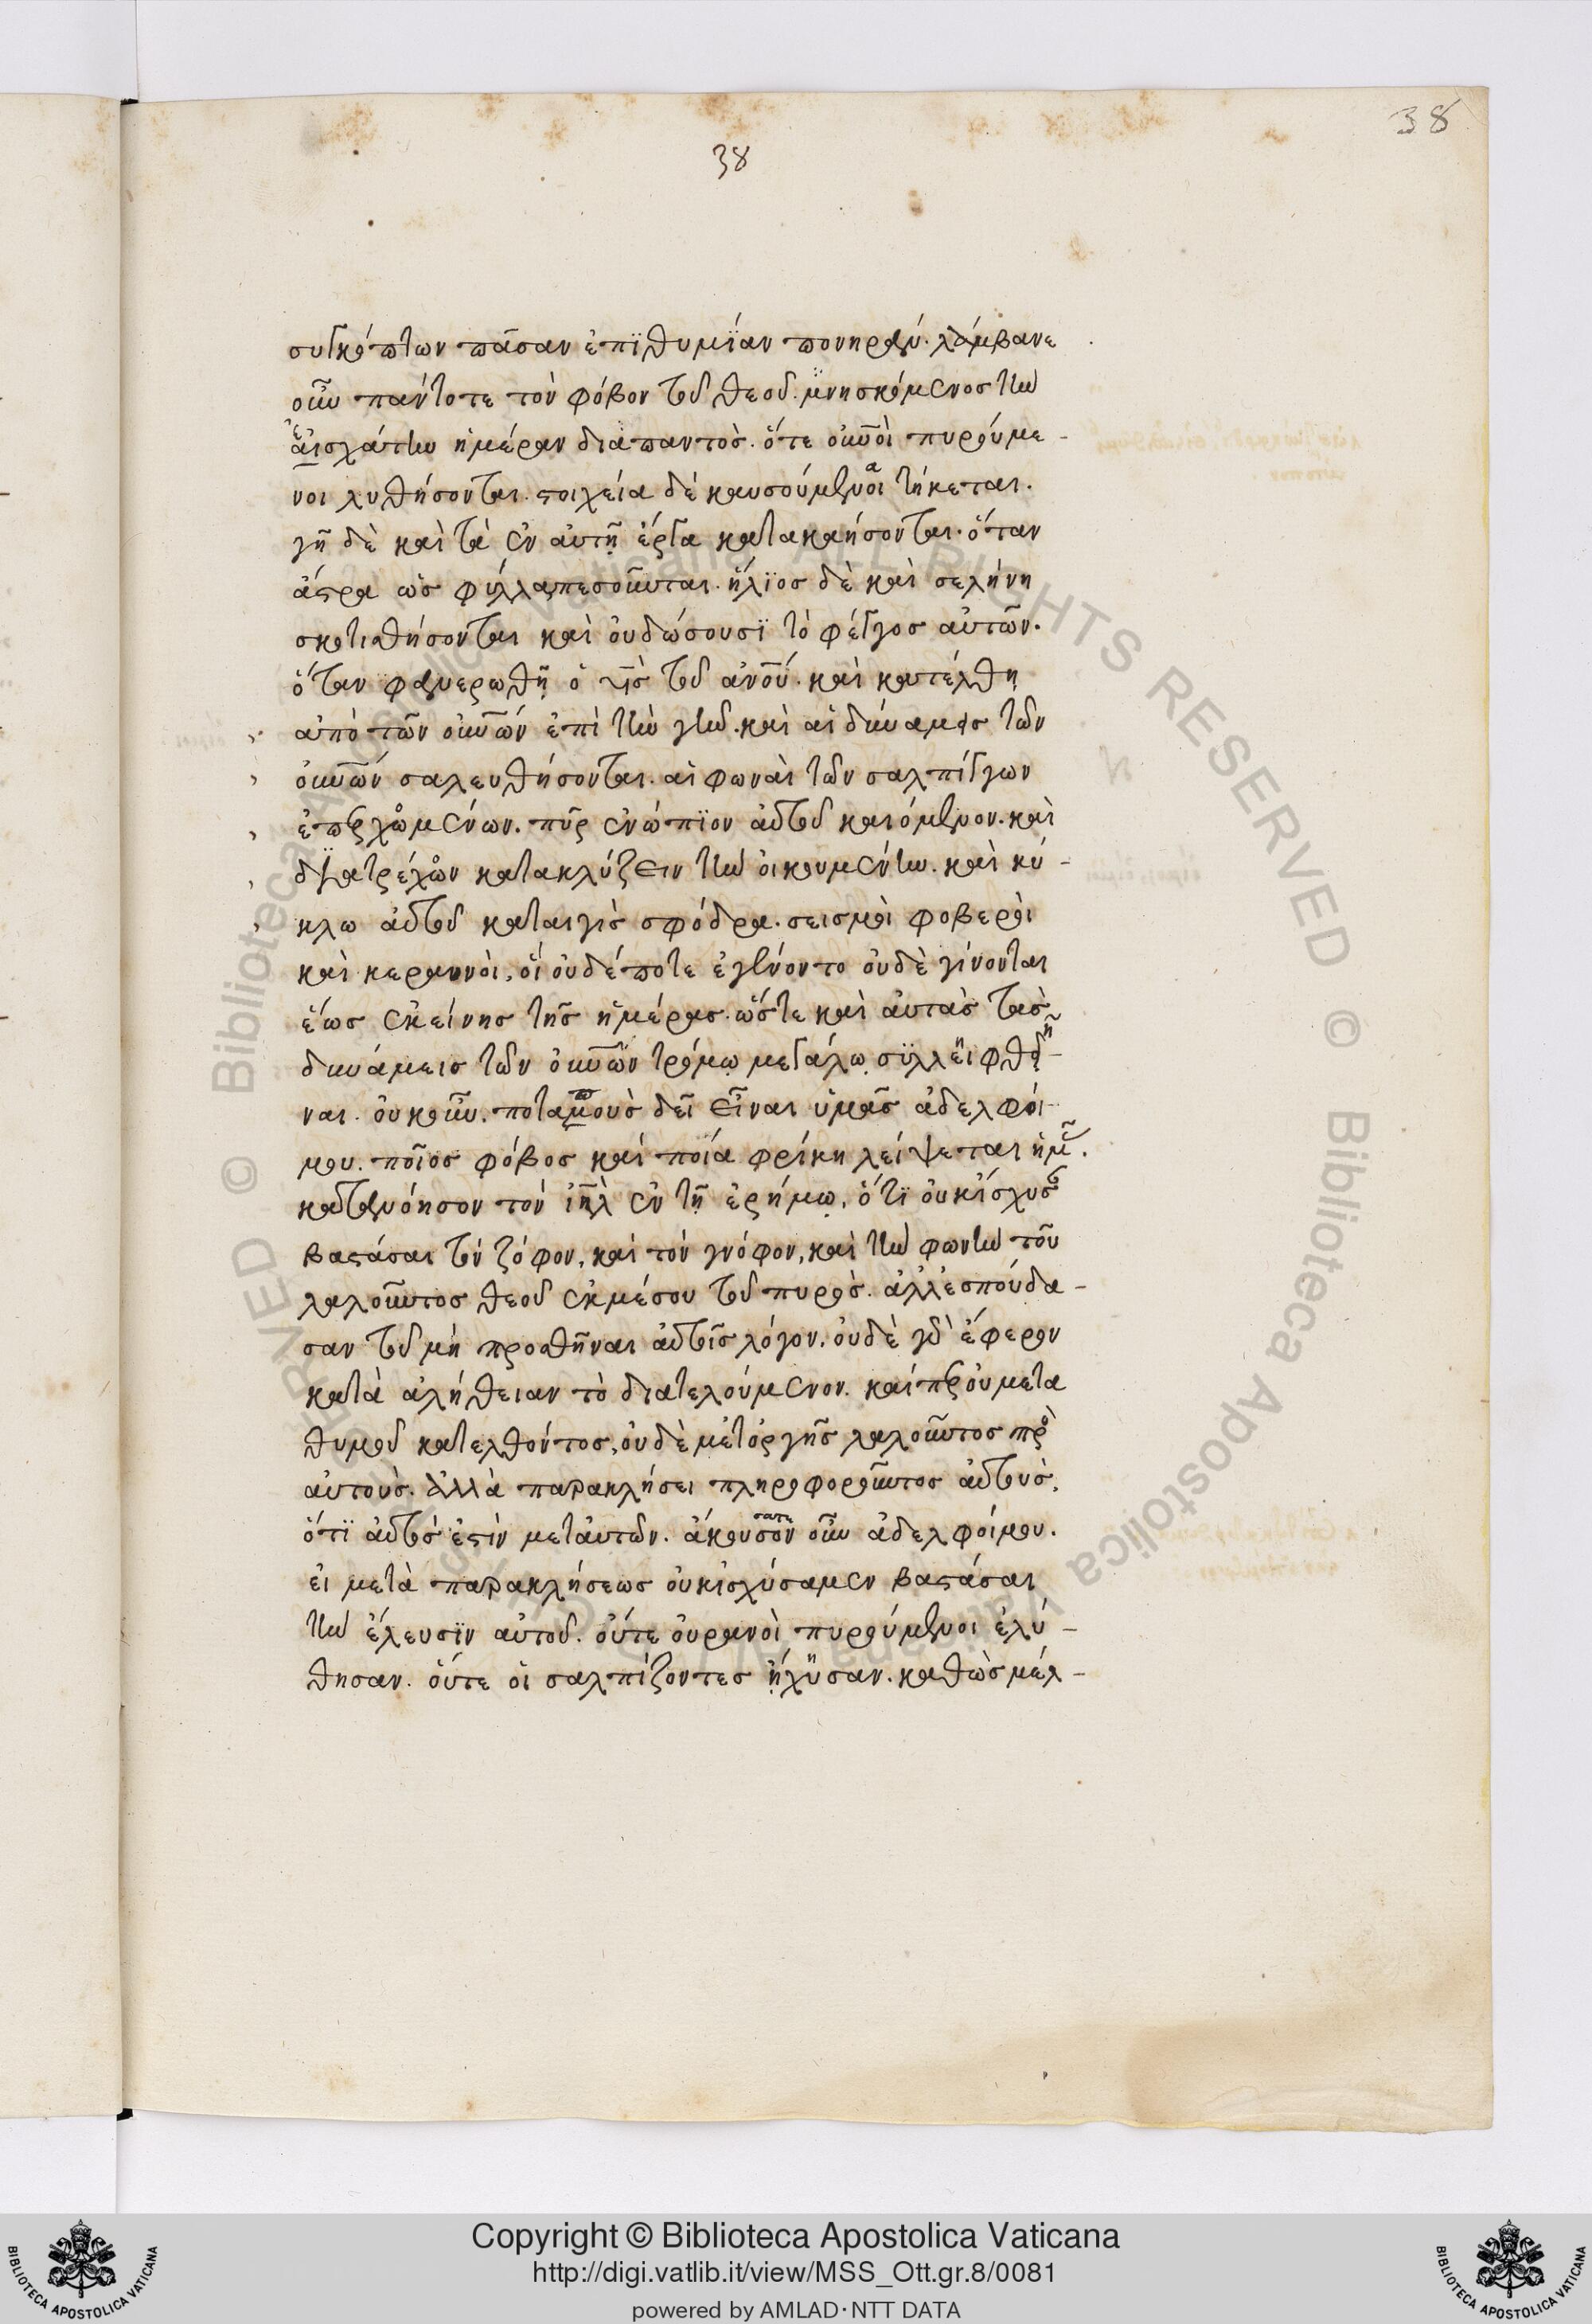 38
38
συγκόπτων πᾶσαν ἐπϊθυμΐαν πονηράν. λάμβανε
οὖν πάντοτε τὸν φόβον τοῦ θεοῦ. μϊνησκόμενος τὴν
ἐαἰσχάτην ἡμέραν διαπαντὸς. ὅτε οὐνοὶ πυρούμε-
νοι λυθήσονται. στοιχεία δὲ καυσούμενοια τήκεται.
γῆ δὲ καὶ τὰ ἐν αὐτῇ ἔργα κατακαήσονται. ὅταν
ἄστρα ὡς φύλλα πεσοῦνται. ἥλϊος δὲ καὶ σελήνη
σκοτισθήσονται καὶ οὐ δώσουσϊ τὸ φέγγος αὐτῶν.
ὅταν φανερωθῇ ὁ υἱὸς τοῦ ἀνοῦ. καὶ κατέλθῃ
ἀπὸ τῶν οὐνῶν ἐπὶ τὴν γῆν. καὶ αἱ δυνάμεις τῶν
οὐνῶν σαλευθήσονται. αἱ φωναὶ τῶν σαλπίγγων
ἐπερχωμένων. πῦρ ἐνώπϊον αὐτοῦ καιόμενον. καὶ
διατρέχων κατακλύζειν τὴν οἰκουμένην. καὶ κύ-
κλω αὐτοῦ καταιγὶς σφόδρα. σεισμοὶ φοβεροὶ
καὶ κεραυνοὶ, οἳ οὐδέποτε ἐγένοντο οὐδὲ γίνονται
ἕως ἐκείνης τῆς ἡμέρας. ὥστε καὶ αὐτὰς τὰς
δυνάμεις τῶν οὐνῶν τρόμῳ μεγάλῳ συλληφθῆ-
ναι. οὐκοῦν. ποταμποὺς δεῖ εἶναι ὑμᾶς ἀδελφοί
μου. ποῖος φόβος καὶ ποία φρίκη λείψεται ἡμῖ.
κατανόησον τὸν ἰηλ ἐν τῇ ἐρήμῳ, ὅτϊ οὐκ ἴσχυσε
βαστάσαι τὸν ζόφον, καὶ τὸν γνόφον, καὶ τὴν φωνὴν τοῦ
λαλοῦντος θεοῦ ἐκ μέσου τοῦ πυρὸς. ἀλλ' ἐσπούδα-
σαν τοῦ μὴ προσθῆναι αὐτοῖς λόγον. οὐδὲ γὰρ ἔφερον
κατὰ ἀλήθειαν τὸ διατελούμενον. καίπερ οὐ μετα
θυμοῦ κατελθόντος, οὐδὲ μετ' ὀργῆς λαλοῦντος πρὸ
αὐτοὺς. ἀλλὰ παρακλήσει πληροφοροῦντος αὐτοὺς,
ὅτϊ αὐτός ἐστὶν μετ' αὐτῶν. ἀκούσονσατε οὖν ἀδελφοί μου.
εἰ μετὰ παρακλήσεως οὐκ ἰσχύσαμεν βαστάσαι
τὴν ἔλευσϊν αὐτοῦ. οὔτε οὐρανοὶ πυρούμενοι ἐλύ-
θησαν. οὔτε οἱ σαλπίζοντες ἤχησαν. καθὼς μέλ-
Copyright © Biblioteca Apostolica Vaticana
http://digi.vatlib.it/view/MSS_Ott.gr.8/0081
powered by AMLAD·NTT DATA
BIBLIOTECA APOSTOLICA VATICANA
BIBLIOTECA APOSTOLICA VATICANA